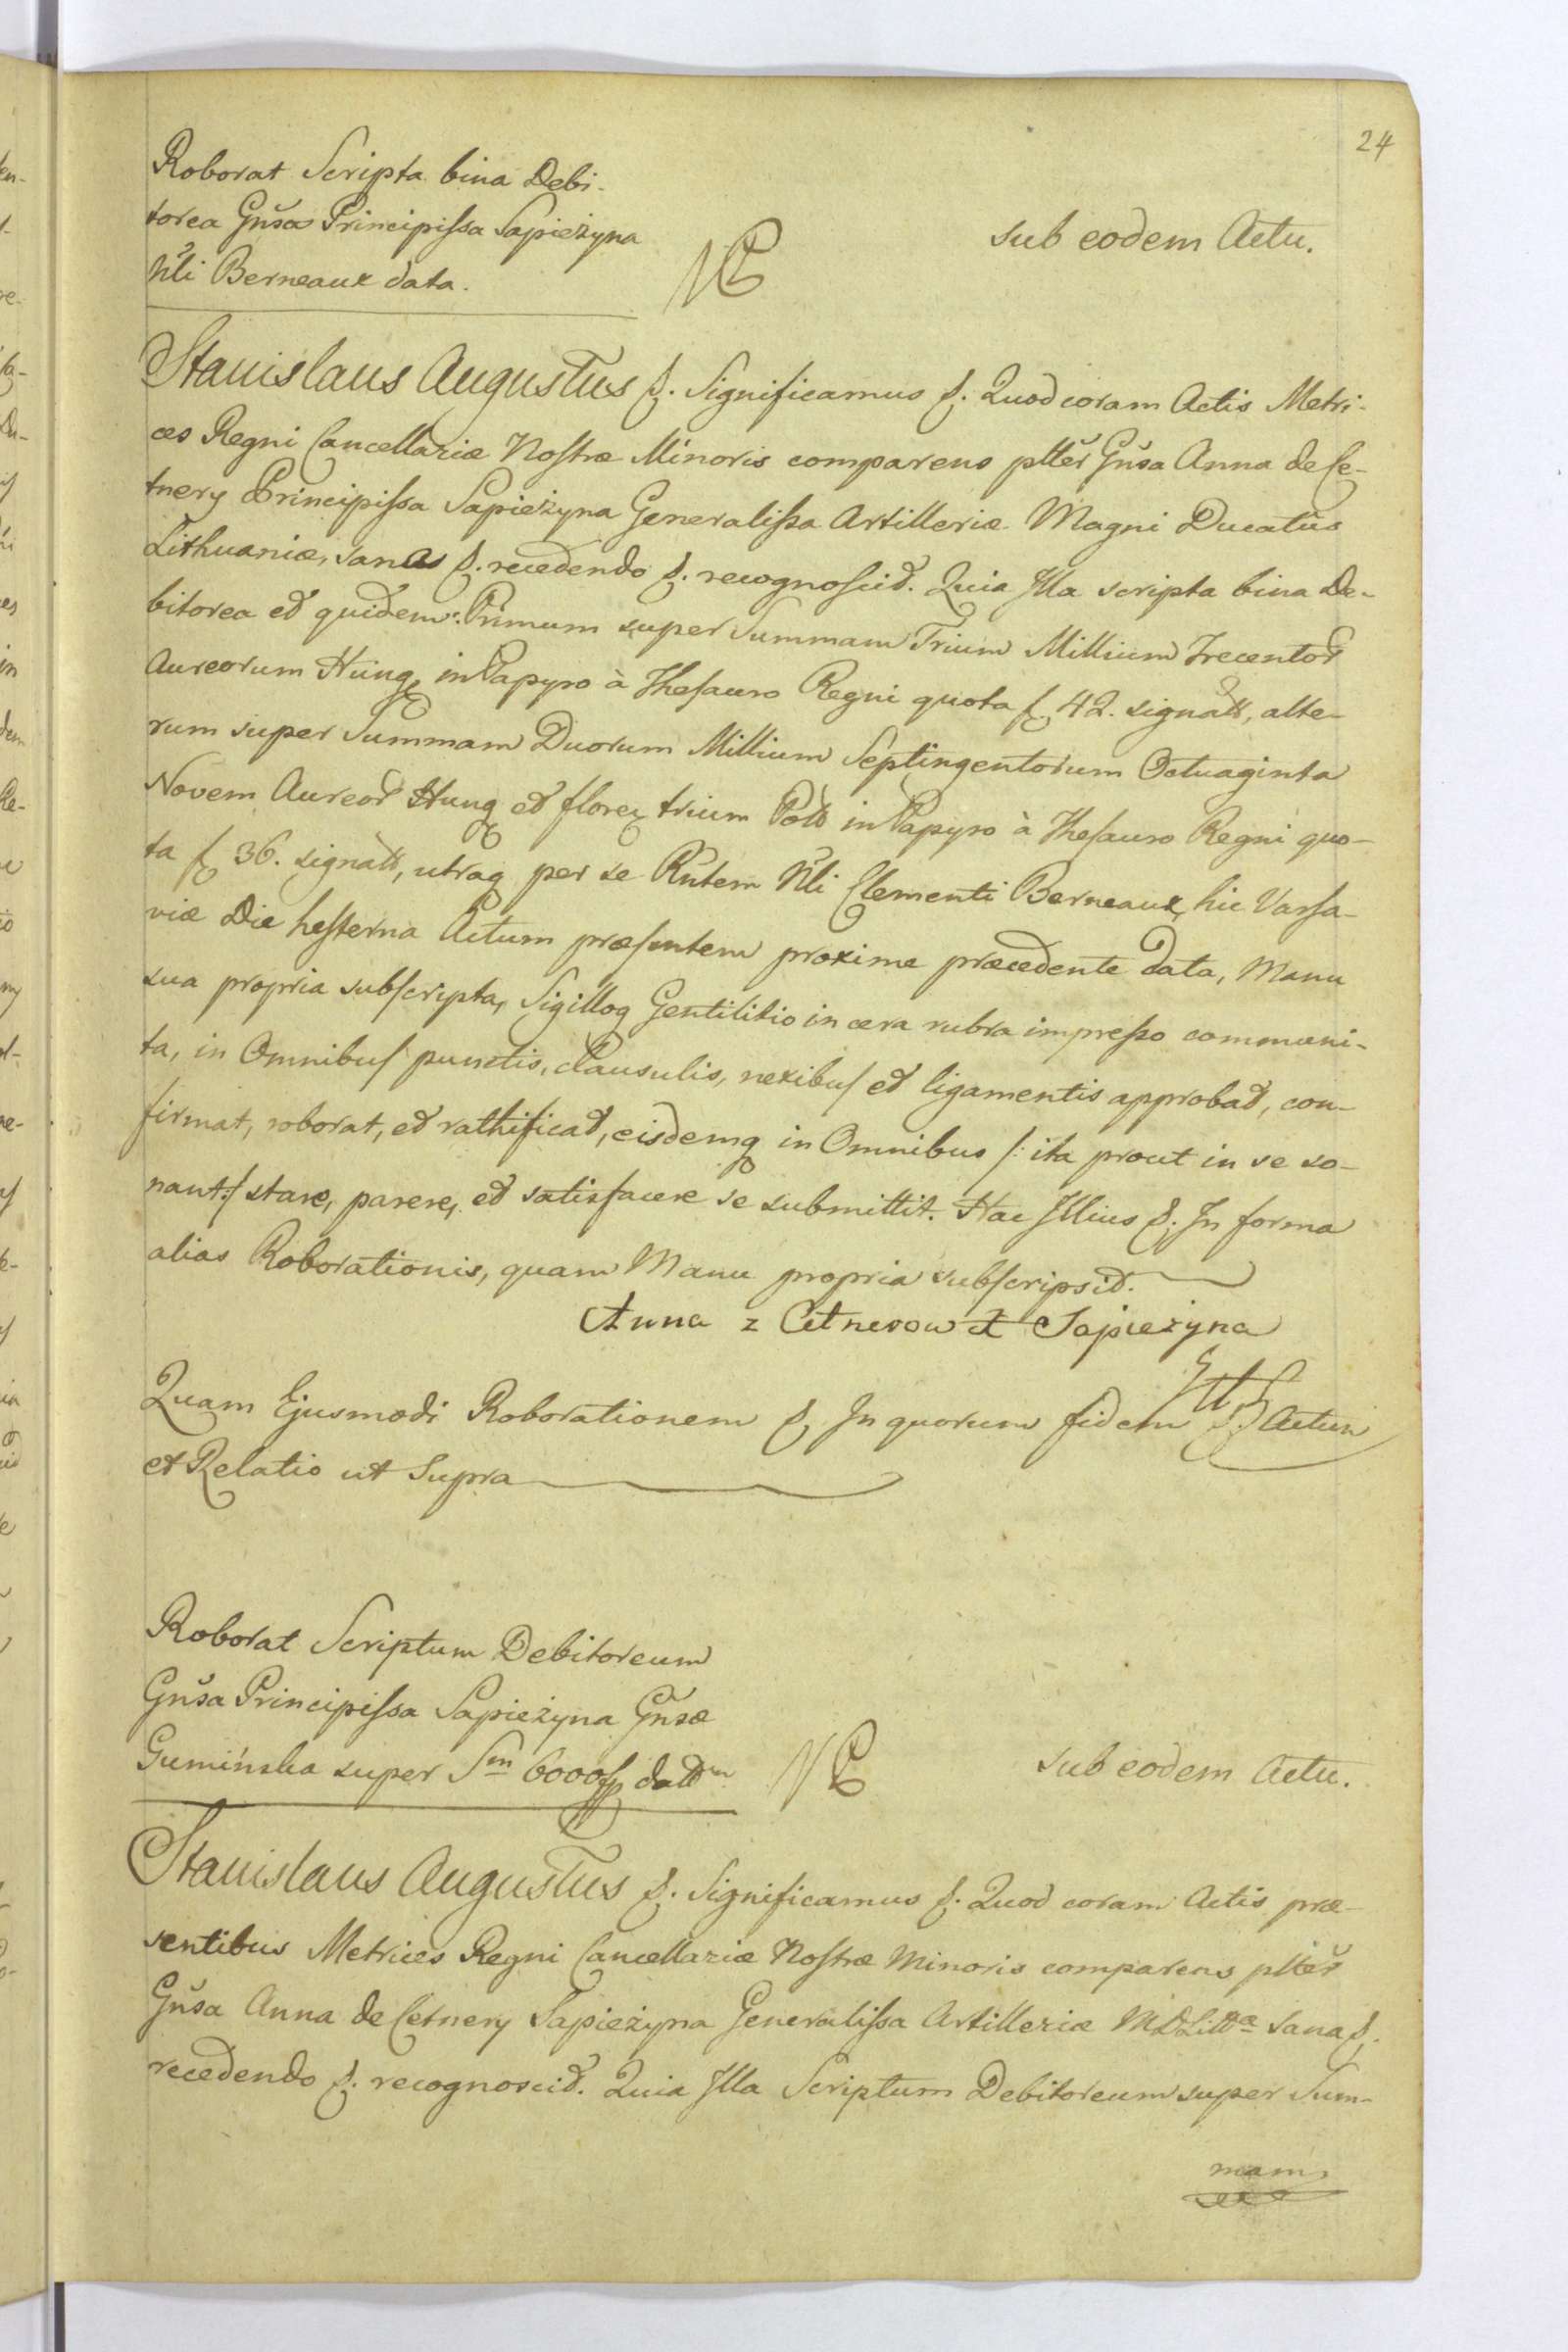 24
Roborat Scripta bina Debi-
torea Gñsa Principissa Sapieżyna
Nli Berneaux data.
sub eodem Actu.
Stanislaus Augustus &. Significamus &. Quod coram Actis Metri-
ces Regni Cancellariæ Nostræ Minoris comparens plter Gñsa Anna de Ce-
tnery Principissa Sapieżyna Generalissa Artilleriæ Magni Ducatus
Lithuaniæ, sana &. recedendo &. recognoscit. Quia Illa scripta bina De-
bitorea et quidem: Primum super Summam Trium Millium Trecentor
Aureorum Hung, in Papyro à Thesauro Regni quota f 42. signatt, alte-
rum super Summam Duorum Millium Septingentorum Octuaginta
Novem Aureor Hung et florez trium Poll in Papyro à Thesauro Regni quo-
ta f 36. signatt, utraq per se Rñtem Nli Clementi Berneaux, hic Varsa-
viæ Die hesterna Actum præsentem proxime præcedente data, Manu
sua propria subscripta, Sigilloq Gentilitio in cera rubra impresso communi-
ta, in Omnibus punctis, clausulis, nexibus et ligamentis approbat, con-
firmat, roborat, et rathificat, eisdemq in Omnibus /: ita prout in se so-
nant :/ stare, parere, et satisfacere se submittit. Hac Illius &. In forma
alias Roborationis, quam Manu propria subscripsit.
Anna z Cetnerow X Sapieżyna
Quam Ejusmodi Roborationem &. In quorum fidem &. Actum
et Relatio ut Supra
Roborat Scriptum Debitoreum
Gñsa Principissa Sapieżyna Gñsæ
Gumińska super Sm 6000 datt
sub eodem Actu.
Stanislaus Augustus &. Significamus &. Quod coram Actis præ-
sentibus Metrices Regni Cancellariæ Nostræ Minoris comparens plter
Gñsa Anna de Cetnery Sapieżyna Generalissa Artilleriæ MDLittæ sana &.
recedendo &. recognoscit. Quia Illa Scriptum Debitoreum super Sum-
mam